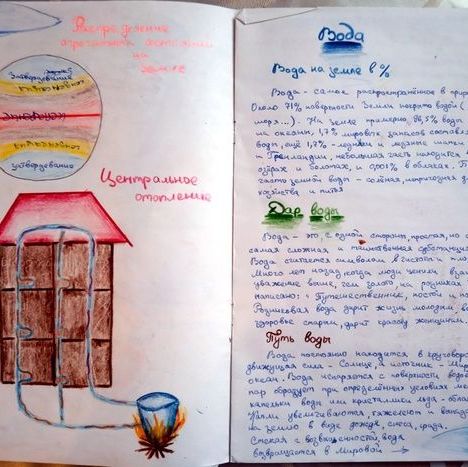 Распределение
агрегатных состояний
на
земле
затвердевание
затвердевание
Центральное
отопление
Вода
Вода на земле в %
Вода - самое распространённое в прир
Около 71% поверхности Земли покрыто водой (
моря...). На Земле примерно, 96,5% воды
на океаны, 1,7% мировых запасов составл
воды, ещё 1,7% - ледники и ледяные шапки
и Гренландии, небольшая часть находится
озёрах и болотах, и 0,001% в облаках.
часть земной воды - солёная, непригодная д
хозяйства и питья
Дар воды
Вода - это, с одной стороны, простая, но с
самая сложная и таинственная субстанция
Вода считается символом
Много лет назад, когда люди
уважение выше, чем золото, на родниках
написано: "Путешественник, постой и
Родниковая вода дарит жизнь молодым,
здоровье старым, дарит красоту женщинам.
Путь воды
Вода постоянно находится в круговор
движущая сила - Солнце, а источник - Мир
океан. Вода испаряется с поверхности водое
пар образует при определённых условиях мел
капельки воды или кристаллики льда - облак
Капли увеличиваются, тяжелеют и выпад
на землю в виде дождя, снега, града.
Стекая с возвышенностей, вода
возвращается в Мировой →